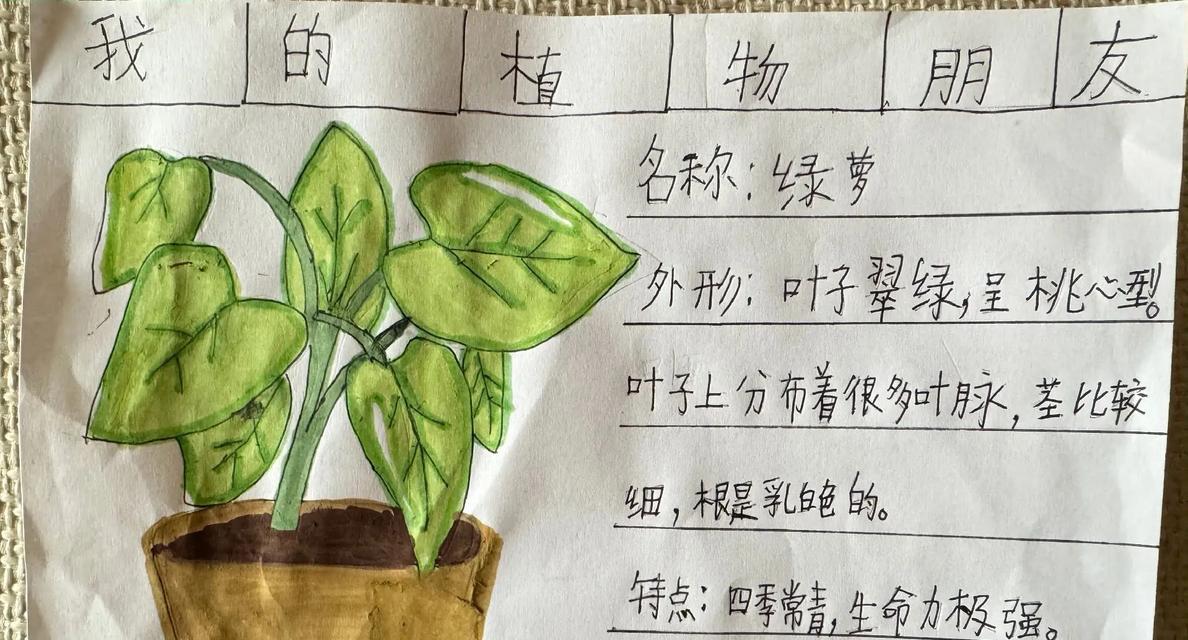 我的植物朋友
名称：绿萝
外形：叶子翠绿，呈桃心型。
叶子上分布着很多叶脉，茎比较
细，根是乳白色的。
特点：四季常青，生命力极强。